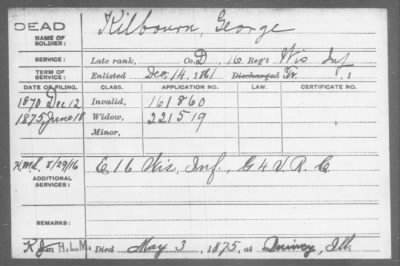 DEAD
NAME OF SOLDIER: Kilbourn, George
SERVICE: Late rank, Co. D, 16 Reg't Wis Inf
TERM OF SERVICE: Enlisted Dec. 14, 1861 Discharged Tr., 1
DATE OF FILING. CLASS. APPLICATION NO. LAW. CERTIFICATE NO.
1870 Dec 12 Invalid, 161860
1875 June 18 Widow, 221519
Minor,
ADDITIONAL SERVICES: E 16 Wis. Inf., G 4 V. R. C.
REMARKS:
Died May 3, 1875, at Quincy, Ills